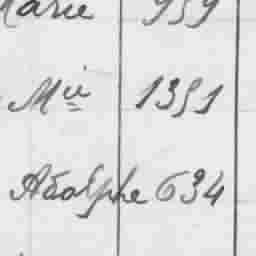 Marie 959
Mie 1351
Adolphe 634